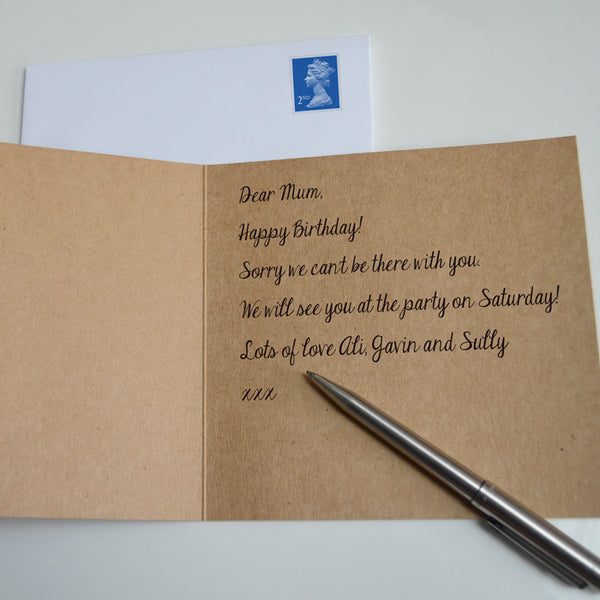 2ND
Dear Mum,
Happy Birthday!
Sorry we can't be there with you.
We will see you at the party on Saturday!
Lots of love Ali, Gavin and Sully
xxx